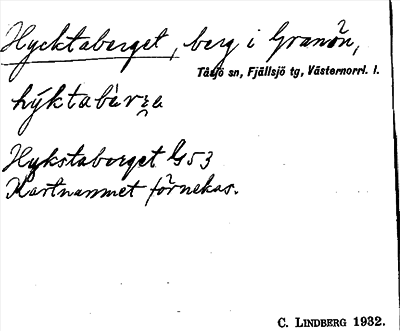 Hycktaberget, berg i Granön,
Tåsjö sn, Fjällsjö tg, Västernorrl. l.
hýktabàrɛ
Hykstaberget G53
Kartnamnet förnekas.
C. LINDBERG 1932.